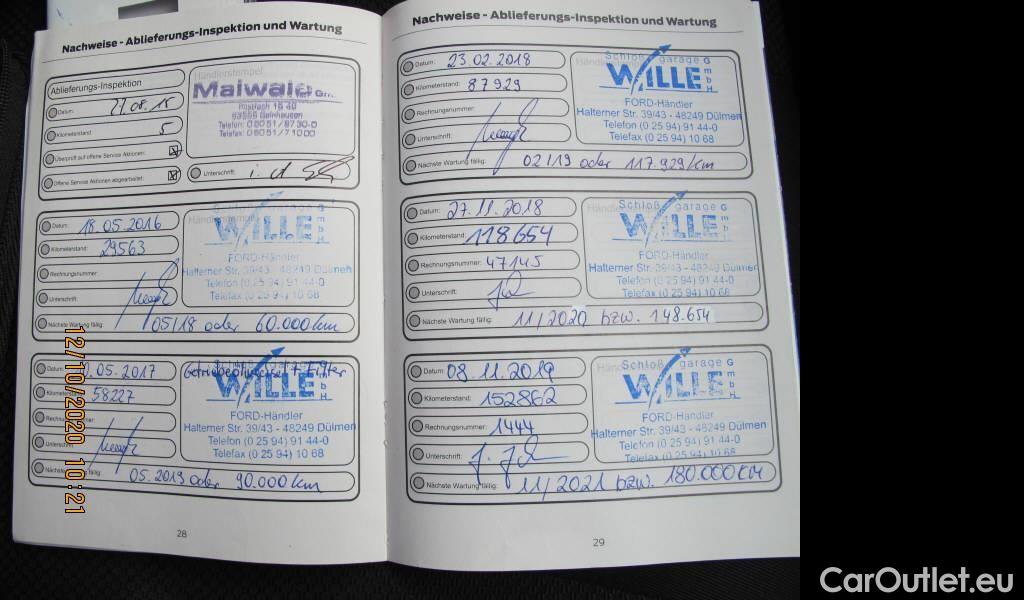 Nachweise - Ablieferungs-Inspektion und Wartung
Ablieferungs-Inspektion
Händlerstempel
Datum: 27.08.15
Kilometerstand: 5
Überprüft auf offene Service Aktionen:
Offene Service Aktionen abgearbeitet:
Maiwald
Postfach 16 40
63556 Gelnhausen
Telefon: 06051/8730-0
Telefax: 06051/71000
Unterschrift: i. A
Datum: 18.05.2016
Kilometerstand: 29563
Rechnungsnummer:
Unterschrift:
Nächste Wartung fällig: 05/18 oder 60.000km
WILLE GmbH
FORD-Händler
Halterner Str. 39/43 - 48249 Dülmen
Telefon (0 25 94) 91 44-0
Telefax (0 25 94) 10 68
Datum: 0.05.2017
Kilometerstand: 58227
Rechnungsnummer:
Unterschrift:
Nächste Wartung fällig: 05.2019 oder 90.000km
WILLE GmbH
FORD-Händler
Halterner Str. 39/43 - 48249 Dülmen
Telefon (0 25 94) 91 44-0
Telefax (0 25 94) 10 68
28
Nachweise - Ablieferungs-Inspektion und Wartung
Datum: 23.02.2018
Kilometerstand: 87929
Rechnungsnummer:
Unterschrift:
Nächste Wartung fällig: 02/19 oder 117.929/km
Schloß garage GmbH
WILLE
FORD-Händler
Halterner Str. 39/43 - 48249 Dülmen
Telefon (0 25 94) 91 44-0
Telefax (0 25 94) 10 68
Datum: 27.11.2018
Kilometerstand: 118.654
Rechnungsnummer: 47145
Unterschrift:
Nächste Wartung fällig: 11/2020 bzw. 148.654
Schloß garage GmbH
WILLE
FORD-Händler
Halterner Str. 39/43 - 48249 Dülmen
Telefon (0 25 94) 91 44-0
Telefax (0 25 94) 10 68
Datum: 08.11.2019
Kilometerstand: 152862
Rechnungsnummer: 1444
Unterschrift:
Nächste Wartung fällig: 11/2021 bzw. 180.000KM
Schloß garage GmbH
WILLE
FORD-Händler
Halterner Str. 39/43 - 48249 Dülmen
Telefon (0 25 94) 91 44-0
Telefax (0 25 94) 10 68
29
12/10/2020 10:21
CarOutlet.eu